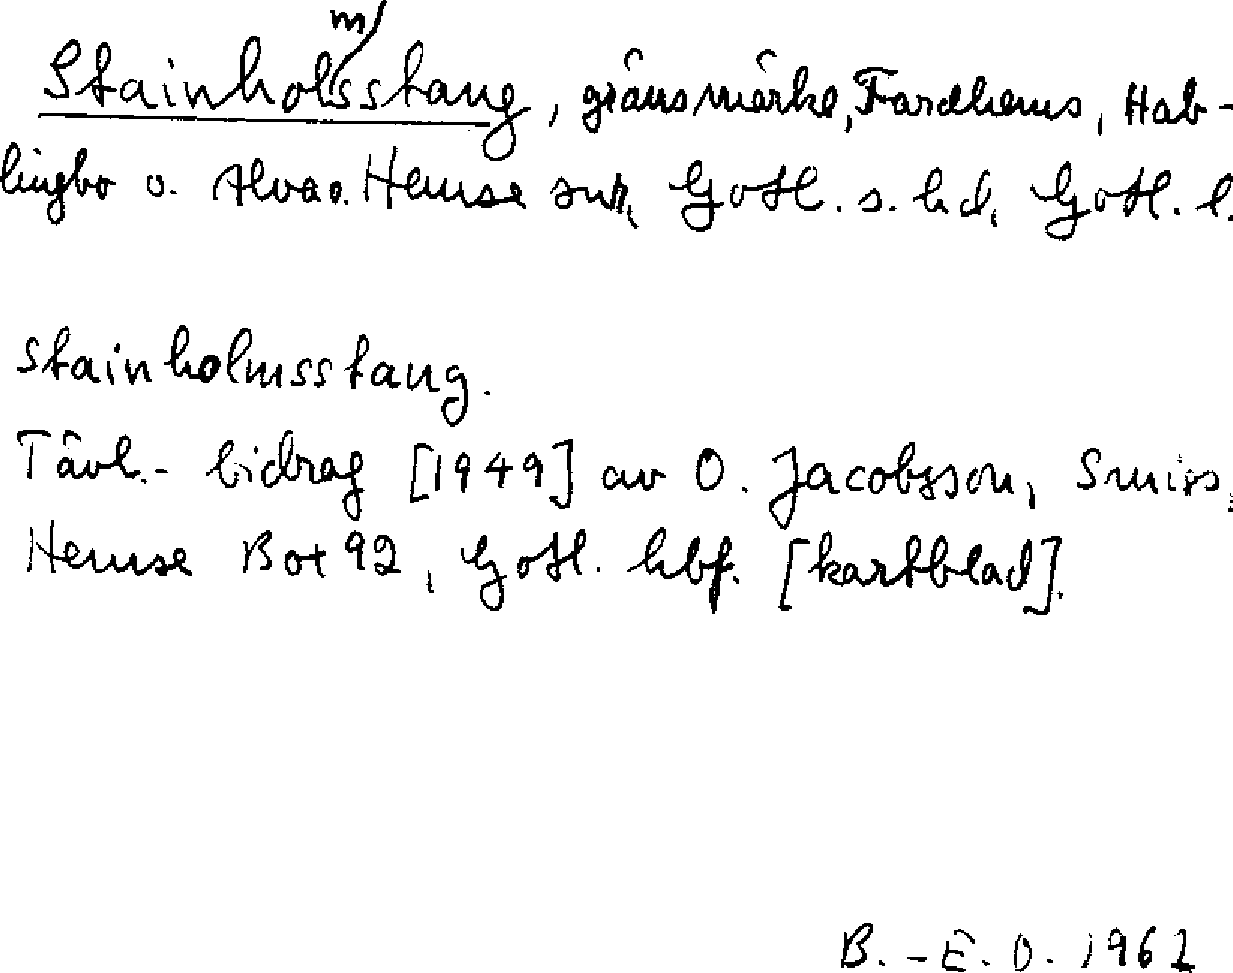 Stainholmsstang, gränsmärke, Fardhems, Hab-
lingbo o. Alva o. Hemse snr, Gotl. s. hd, Gotl. l.
stainholmsstang.
Tävl.- bidrag [1949] av O. Jacobsson, Smiss,
Hemse Box 92, Gotl. hbf. [kartblad].
B.-E. O. 1962